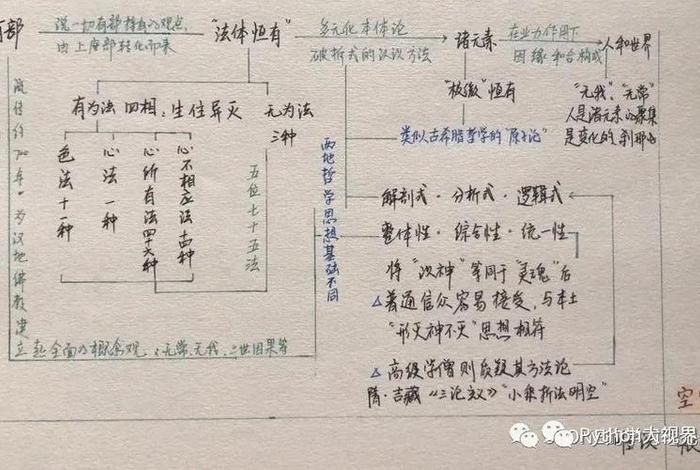 有部
说一切有部持有的观点
由上座部转化而来
"法体恒有"
多元化本体论
破析式的认识方法
诸元素
在业力作用下
因缘和合构成
人和世界
"极微"恒有
类似古希腊哲学的"原子论"
"无我""无常"
人是诸元素的聚集
是变化的刹那
有为法 四相:生住异灭
无为法
三种
色法十一种
心法一种
心所有法四十六种
心不相应法十四种
五位七十五法
两地哲学思想基础不同
流传约700年·为汉地佛教建
立起全面的概念观
无常、无我、三世因果等
解剖式·分析式·逻辑式
整体性·综合性·统一性
将"识神"等同于"灵魂"后
△普通信众容易接受,与本土
"形灭神不灭"思想相符
△高级学僧则质疑其方法论
隋·吉藏《三论玄义》"小乘析法明空"
空
Python大视界